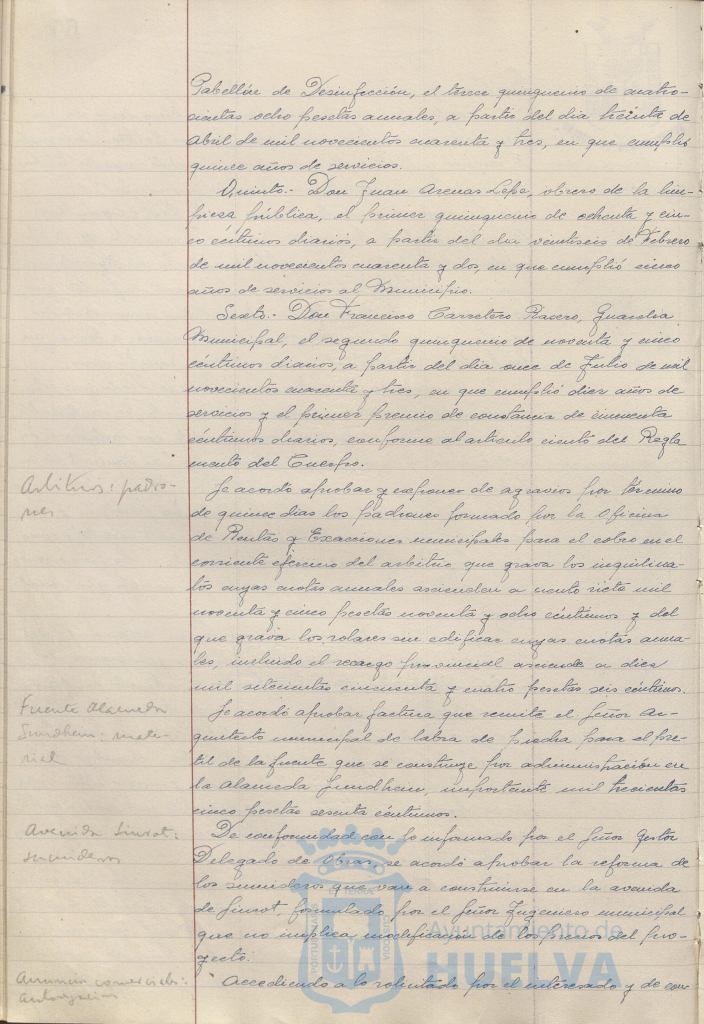 Pabellón de Desinfección, el tercer quinquenio de cuatro-
cientas ocho pesetas anuales, a partir del dia treinta de
Abril de mil novecientos cuarenta y tres, en que cumplió
quince años de servicios.
Quinto.- Don Juan Arenas Lepe, obrero de la lim-
pieza pública, el primer quinquenio de ochenta y cin-
co céntimos diarios, a partir del dia veintiseis de Febrero
de mil novecientos cuarenta y dos, en que cumplió cinco
años de servicios al Municipio.
Sexto.- Don Francisco Carretero Racero, Guardia
Municipal, el segundo quinquenio de noventa y cinco
céntimos diarios, a partir del dia once de Julio de mil
novecientos cuarenta y tres, en que cumplió diez años de
servicios y el primer premio de constancia de cincuenta
céntimos diarios, conforme al articulo ciento del Regla
mento del Cuerpo.
Arbitrios: padro-
nes
Se acordó aprobar y exponer de agravios por término
de quince dias los padrones formado por la Oficina
de Rentas y Exacciones municipales para el cobro en el
corriente ejercicio del arbitrio que grava los inquilina-
tos cuyas cuotas anuales ascienden a ciento siete mil
noventa y cinco pesetas noventa y ocho céntimos y del
que grava los solares sin edificar cuyas cuotas anua-
les, incluido el recargo provincial asciende a diez
mil setecientas cincuenta y cuatro pesetas seis céntimos.
Fuente Alameda
Sundhem: mate-
rial
Se acordó aprobar factura que remite el Señor Ar-
quitecto municipal de labra de piedra para el pre-
til de la fuente que se construye por administración en
la Alameda Sundhem, importante mil trescientas
cinco pesetas sesenta céntimos.
Avenida Siurot:
sumideros
De conformidad con lo informado por el Señor Gestor
Delegado de Obras, se acordó aprobar la reforma de
los sumideros que van a construirse en la avenida
de Siurot, formulado por el Señor Ingeniero municipal
que no implica modificación de los precios del pro-
yecto.
Anuncios comerciales:
Autorización
Accediendo a lo solicitado por el interesado y de con-
Ayuntamiento de
HUELVA